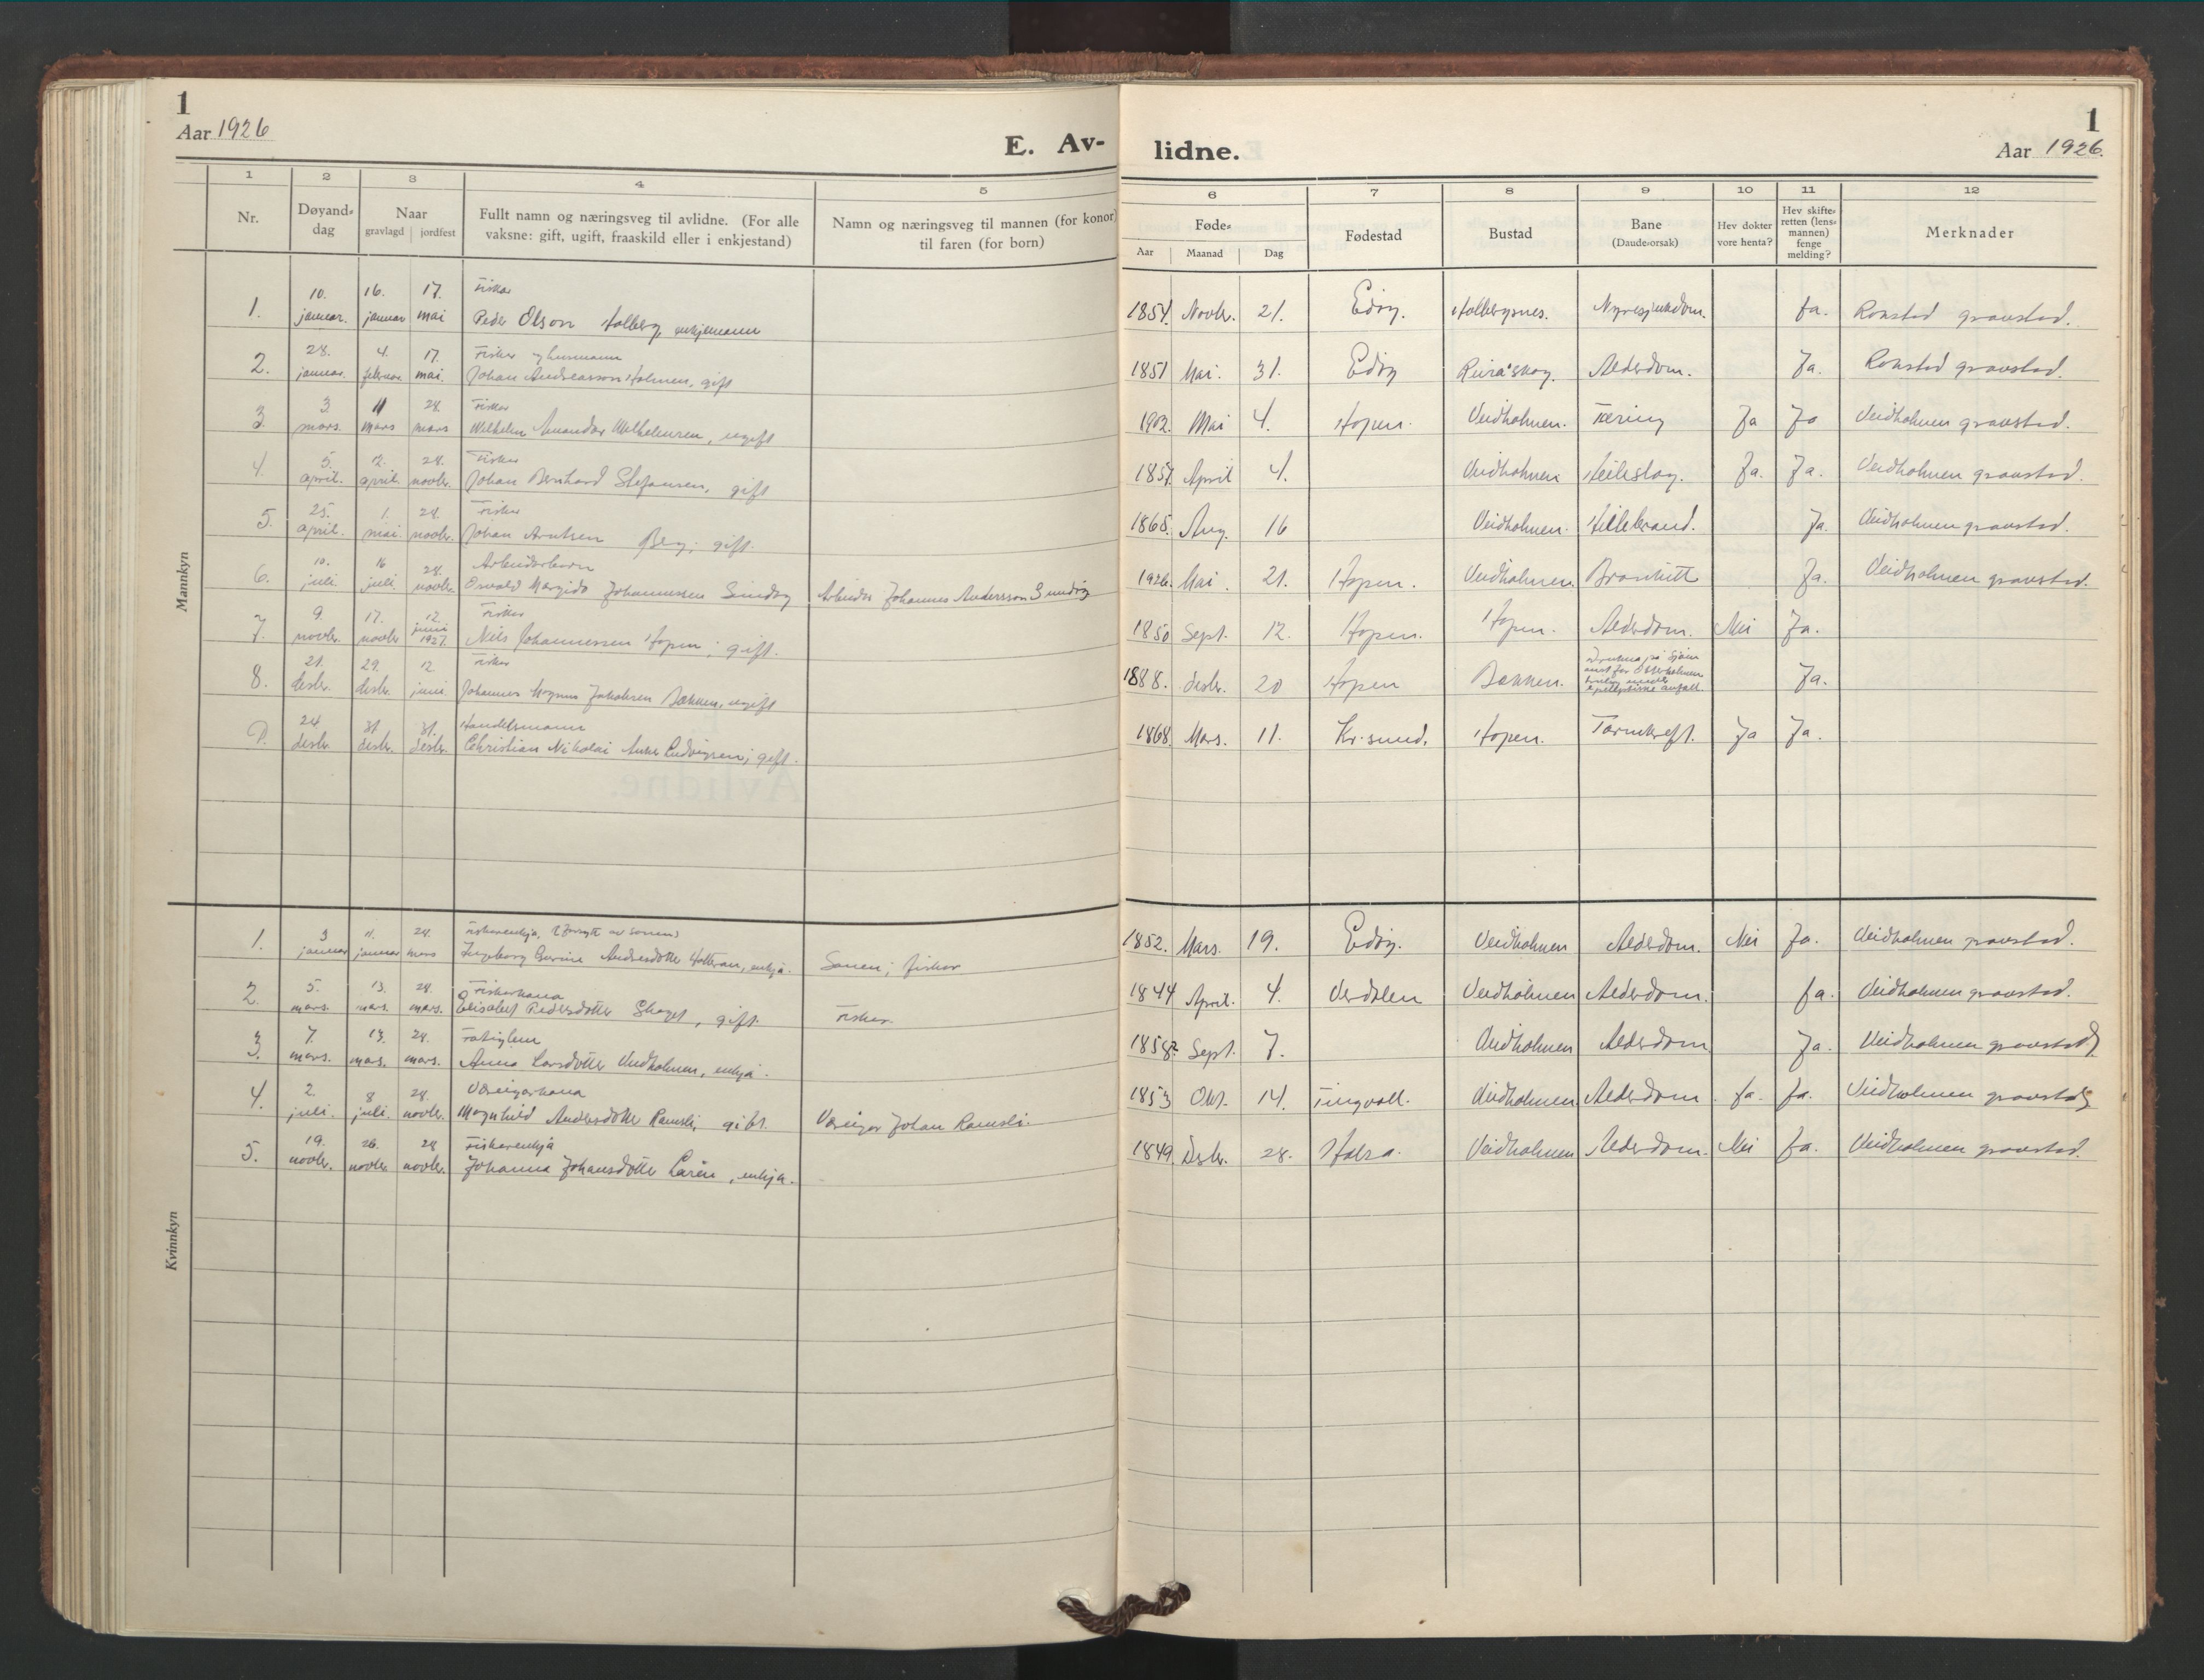 1
Aar 1926
E. Av-
1 2 3 4 5
Nr. Døyand-dag Naar gravlagd jordfest Fullt namn og næringsveg til avlidne. (For alle vaksne: gift, ugift, fraaskild eller i enkjestand) Namn og næringsveg til mannen (for konor) til faren (for born)
Mannkyn
10. 16. 17. Fiskar
1. januar. januar mai Peder Olson Holberg enkjemann
28. 4. 17. Fiskar og husmann
2. januar. februar. mai. Johan Andreasson Holmen, gift
3. 11 28. Fiskar
3. mars. mars mars Wilhelm Amandar Wilhelmsen, ugift
5. 12. 28. Fiskar
4. april. april. novbr. Johan Bernhard Stefansen, gift
25. 1. 28. Fiskar
5. april. mai. novbr. Johan Arntsen Berg; gift.
10. 16 28. Arbeidarborn
6. juli juli novbr. Osvald Margido Johannessen Sundøy Arbeidar Johannes Andersson Sundøy
9. 17. 12. Fiskar
7. novbr. novbr juni 1927. Nils Johannessen Hopen; gift.
21. 29. 12 Fiskar
8. desbr. desbr. juni Johannes Magnus Jakobsen Bakken, ugift
24 31. 31. Handelsmann
9. desbr. desbr. desbr. Christian Nikolai Anker Ludvigsen; gift.
Kvinnkyn
3 11. 28. Fiskarenkja, (forsytt av sonen)
1. januar januar mars Ingeborg Gurine Andersdotter Hatteran, enkja. Sonen; fiskar
5. 13. 28. Fiskarkona
2. mars. mars. mars. Elisabet Pedersdotter Skaget, gift. Fiskar.
7. 13. 28. Fatiglem
3. mars. mars. mars. Anna Larsdotter Veidholmen, enkja.
2. 8 28. Væreigarkona
4. juli. juli. novbr. Magnhild Andersdotter Ramsli, gift. Væreigar Johan Ramsli.
19. 26. 28 Fiskarenkja
5. novbr. novbr novbr. Johanna Johansdotter Laren, enkja.
1
lidne.
Aar 1926.
6 7 8 9 10 11 12
Føde- Aar Maanad Dag Fødestad Bustad Bane (Daude-orsak) Hev dokter vore henta? Hev skifte-retten (lens-mannen) fenge melding? Merknader
1854. Novbr. 21. Edøy. Holbergsnes. Nyresjukdom. Ja. Ronstad gravstad.
1851 Mai. 31. Edøy Alderdom. Ja. Ronstad gravstad.
1902. Mai 4. Hopen. Veidholmen. Tæring Ja Ja Veidholmen gravstad.
1857. April 4. Veidholmen Heileslag. Ja. Ja. Veidholmen gravstad.
1865. Aug. 16 Veidholmen. Ja. Veidholmen gravstad.
1926. Mai. 21. Hopen. Veidholmen. Bronkitt Ja. Veidholmen gravstad.
1850 Sept. 12. Hopen. Hopen. Alderdom. Nei Ja.
1888. desbr. 20 Hopen Bakken. Drukna på sjøen aust for Otterholmen truleg under epileptiske anfall. Ja.
1868. Mars. 11. Kr.sund. Hopen. Tarmkreft. Ja Ja.
1852. Mars. 19. Edøy. Veidholmen Alderdom. Nei Ja. Veidholmen gravstad.
1844 April. 4. Verdalen Veidholmen Alderdom. Ja. Veidholmen gravstad.
1858? Sept. 7. Veidholmen Alderdom Ja. Veidholmen gravstad
1853 Okt. 14. Tingvoll. Veidholmen Alderdom Ja. Ja. Veidholmen gravstad
1849. Desbr. 28. Halsa. Veidholmen Alderdom. Nei Ja. Veidholmen gravstad.